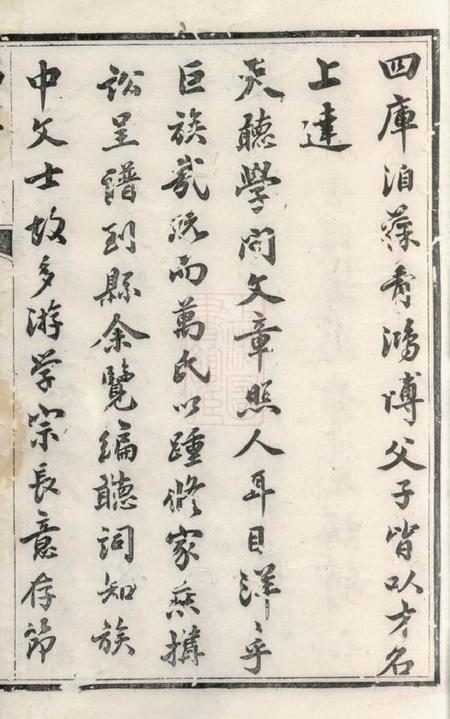 四庫洎薦青鴻博父子皆以才名
上達
天聽學問文章照人耳目洋洋乎
巨族哉既而萬氏以踵修家乘搆
訟呈譜到縣余覽編聽詞知族
中文士故多游学宗長意存節